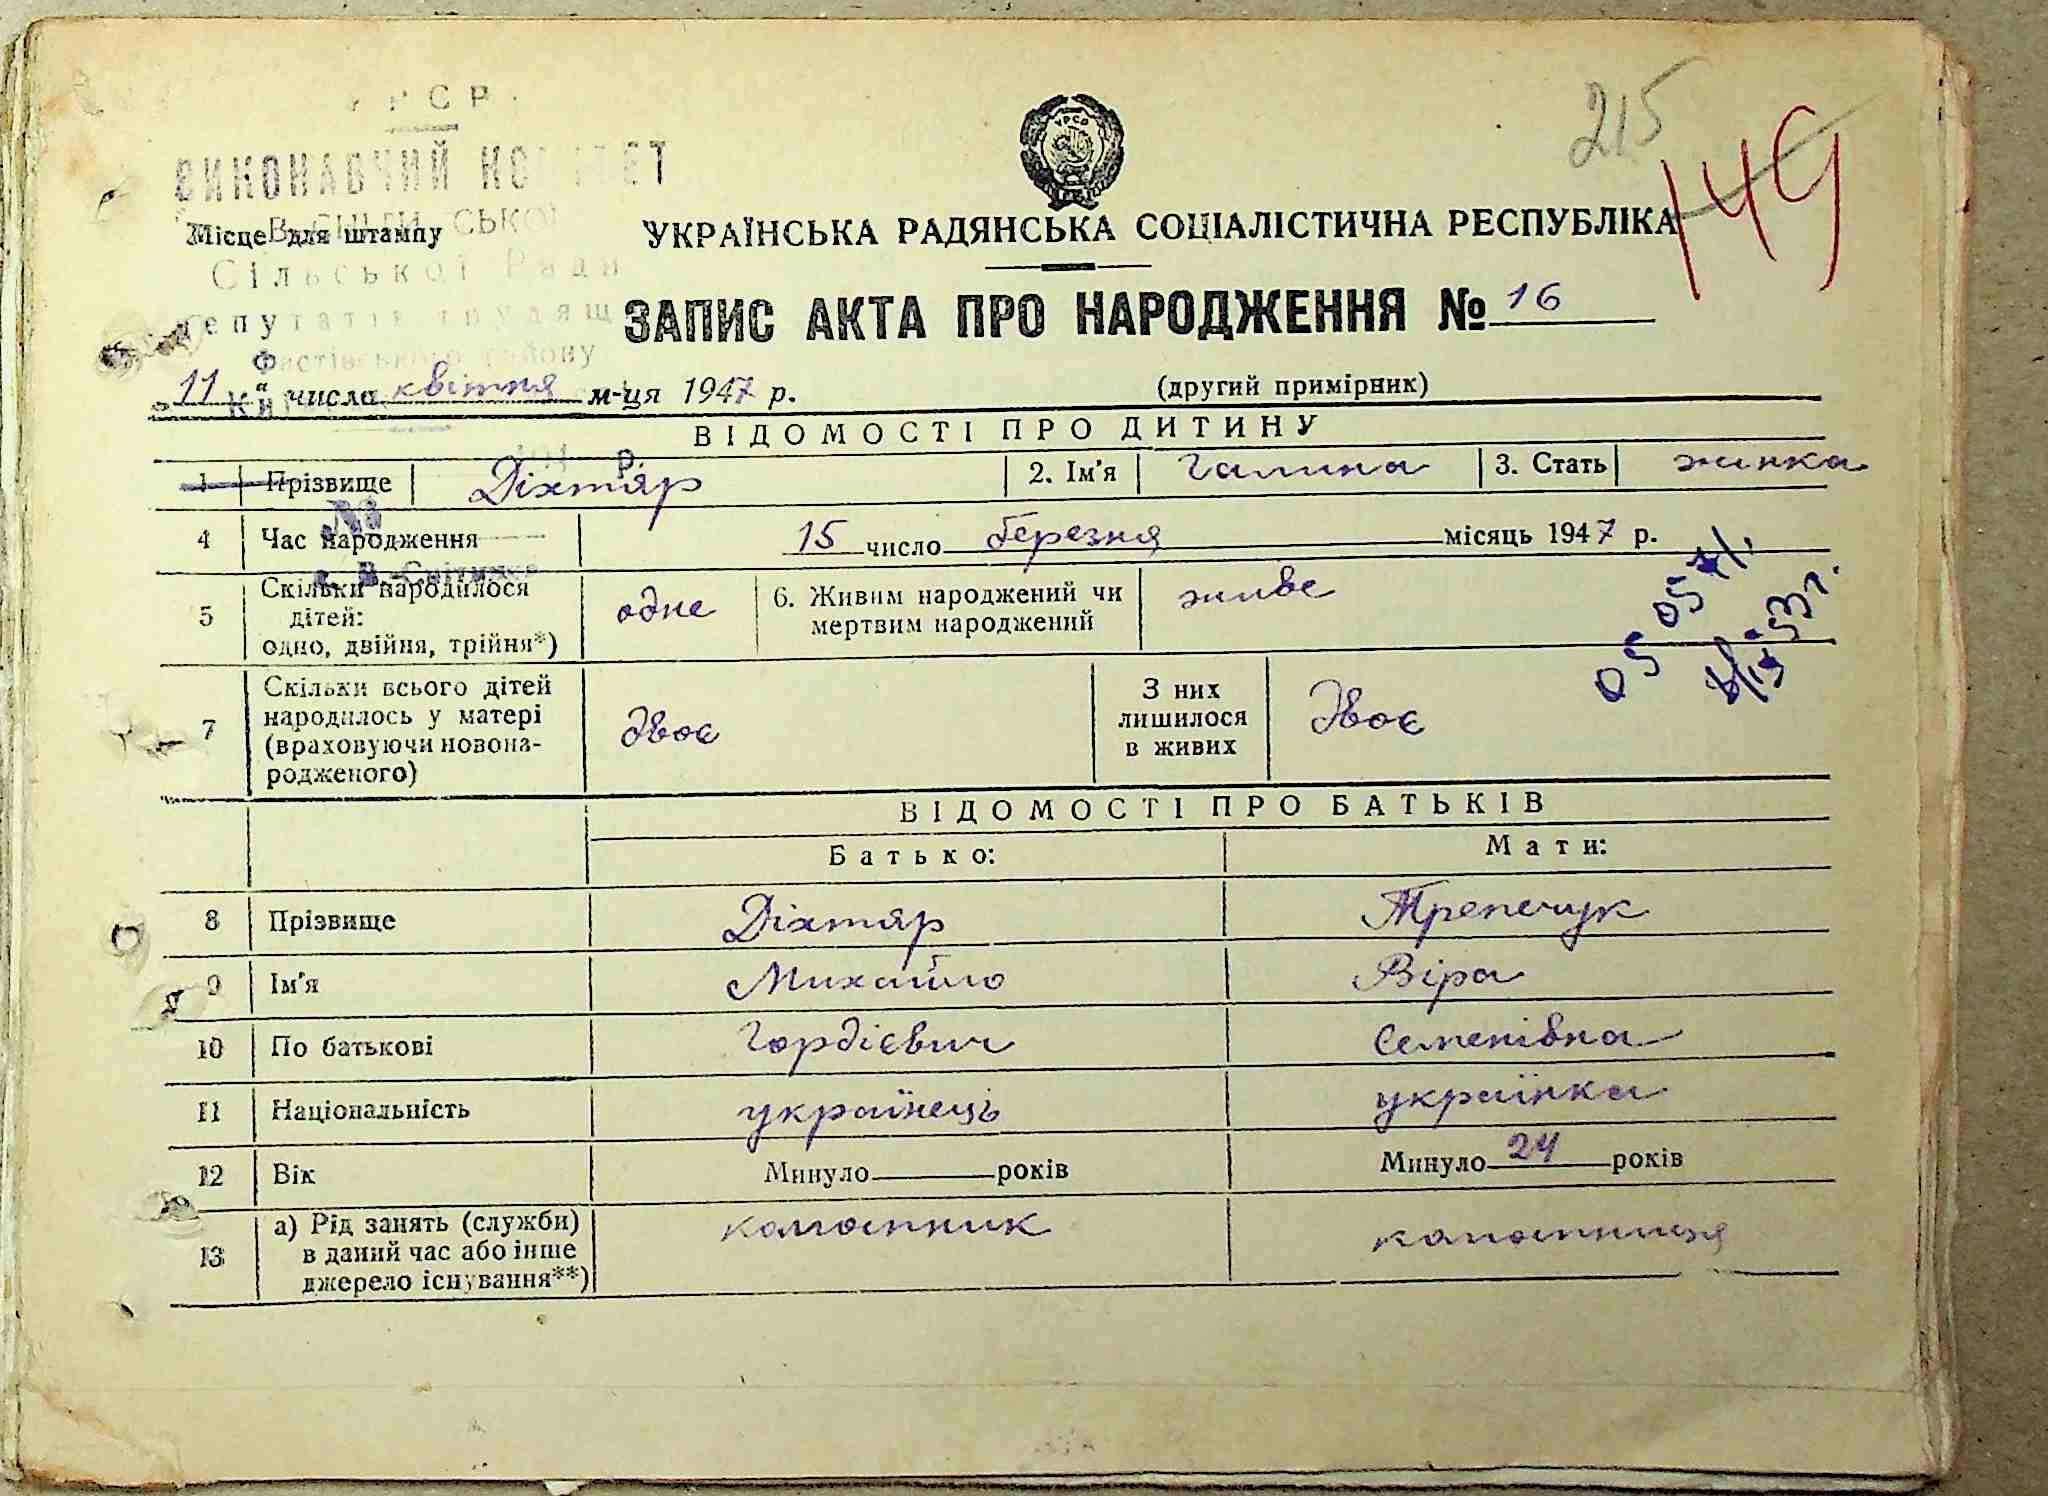 УРСР
ВИКОНАВЧИЙ КОМІТЕТ
СЬКОЇ
Місце для штампу
Сільської Ради
депутатів трудящ
Фастівського району
215
149
УРСР
УКРАЇНСЬКА РАДЯНСЬКА СОЦІАЛІСТИЧНА РЕСПУБЛІКА
ЗАПИС АКТА ПРО НАРОДЖЕННЯ № 16
„11“ числа квітня м-ця 1947 р.
(другий примірник)
ВІДОМОСТІ ПРО ДИТИНУ
1 Прізвище Діхтяр 2. Ім'я Галина 3. Стать жінка
№
4 Час народження 15 число березня місяць 1947 р.
5 Скільки народилося дітей: одно, двійня, трійня*) одне 6. Живим народжений чи мертвим народжений живе
7 Скільки всього дітей народилось у матері (враховуючи новонародженого) двоє З них лишилося в живих двоє
ВІДОМОСТІ ПРО БАТЬКІВ
Батько: Мати:
8 Прізвище Діхтяр Трепечук
9 Ім'я Михайло Віра
10 По батькові Гордієвич Семенівна
11 Національність українець українка
12 Вік Минуло років Минуло 24 років
13 а) Рід занять (служби) в даний час або інше джерело існування**)